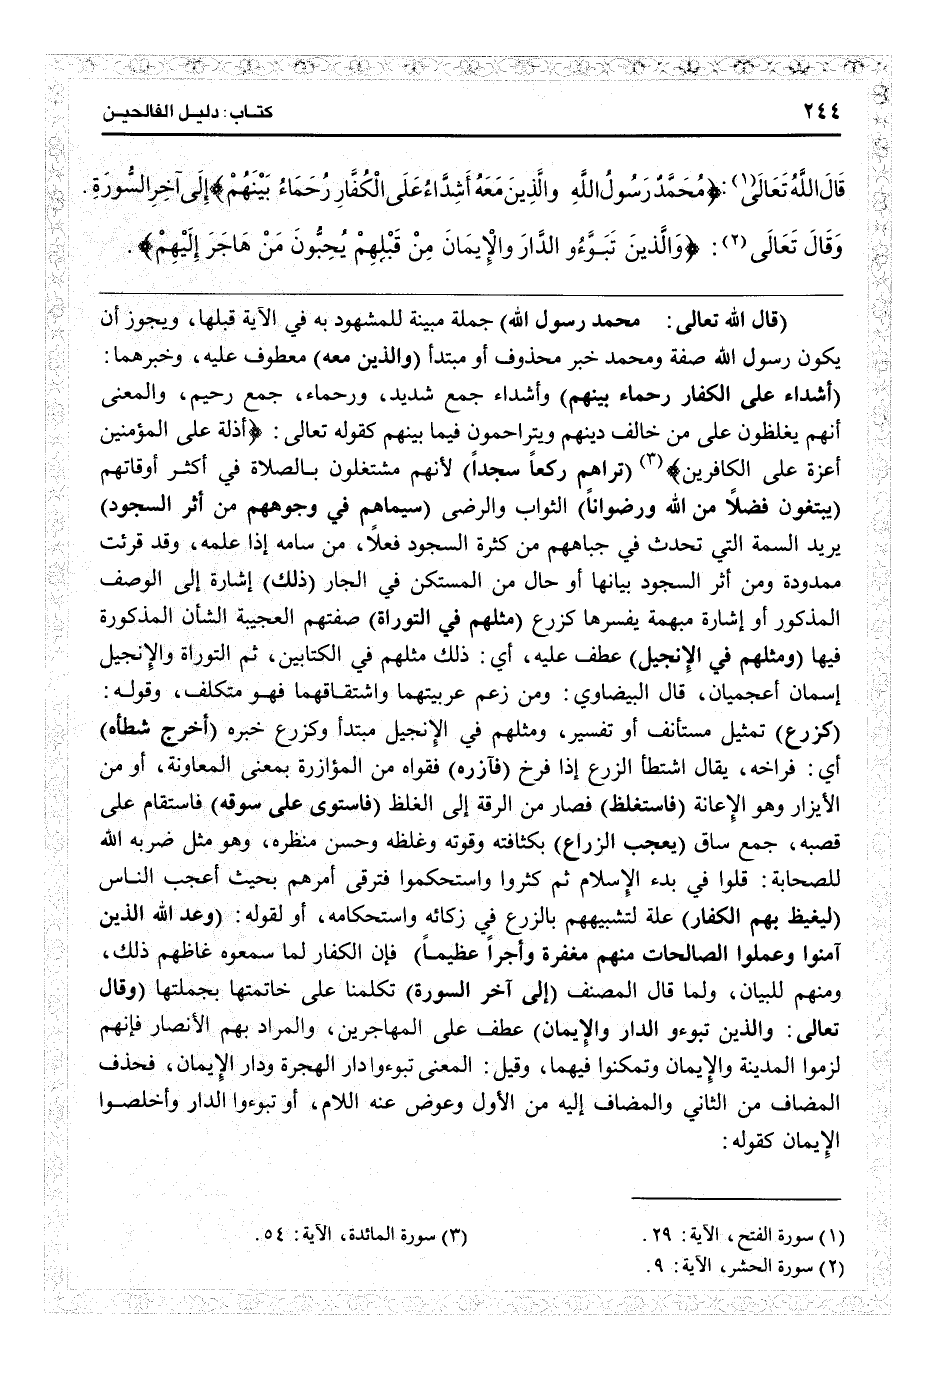 ٢٤٤
كتاب: دليل الفالحين
قَالَ اللَّهُ تَعَالَى(١): ﴿مُحَمَّدٌ رَسُولُ اللَّهِ والَّذِينَ مَعَهُ أَشِدَّاءُ عَلَى الْكُفَّارِ رُحَمَاءُ بَيْنَهُمْ﴾ إِلَى آخِرِ السُّورَةِ.
وَقَالَ تَعَالَى (٢): ﴿وَالَّذينَ تَبَـوَّءُو الدَّارَ والْإِيمَانَ مِنْ قَبْلِهِمْ يُحِبُّونَ مَنْ هَاجَرَ إِلَيْهِمْ﴾.
(قال الله تعالى: محمد رسول الله) جملة مبينة للمشهود به في الآية قبلها، ويجوز أن
يكون رسول الله صفة ومحمد خبر محذوف أو مبتدأ (والذين معه) معطوف عليه، وخبرهما:
(أشداء على الكفار رحماء بينهم) وأشداء جمع شديد، ورحماء، جمع رحيم، والمعنى
أنهم يغلظون على من خالف دينهم ويتراحمون فيما بينهم كقوله تعالى: ﴿أذلة على المؤمنين
أعزة على الكافرين﴾(٣) (تراهم ركعاً سجداً) لأنهم مشتغلون بـالصلاة في أكثـر أوقاتهم
(يبتغون فضلاً من الله ورضواناً) الثواب والرضى (سيماهم في وجوههم من أثر السجود)
يريد السمة التي تحدث في جباههم من كثرة السجود فعلاً، من سامه إذا علمه، وقد قرئت
ممدودة ومن أثر السجود بيانها أو حال من المستكن في الجار (ذلك) إشارة إلى الوصف
المذكور أو إشارة مبهمة يفسرها كزرع (مثلهم في التوراة) صفتهم العجيبة الشأن المذكورة
فيها (ومثلهم في الإنجيل) عطف عليه، أي: ذلك مثلهم في الكتابين، ثم التوراة والإنجيل
إسمان أعجميان، قال البيضاوي: ومن زعم عربيتهما واشتقـاقهما فهـو متكلف، وقولـه:
(كزرع) تمثيل مستأنف أو تفسير، ومثلهم في الإنجيل مبتدأ وكزرع خبره (أخرج شطأه)
أي: فراخه، يقال اشتطأ الزرع إذا فرخ (فآزره) فقواه من المؤازرة بمعنى المعاونة، أو من
الأيزار وهو الإعانة (فاستغلظ) فصار من الرقة إلى الغلظ (فاستوى على سوقه) فاستقام على
قصبه، جمع ساق (يعجب الزراع) بكثافته وقوته وغلظه وحسن منظره، وهو مثل ضربه الله
للصحابة: قلوا في بدء الإسلام ثم كثروا واستحكموا فترقى أمرهم بحيث أعجب النـاس
(ليغيظ بهم الكفار) علة لتشبيههم بالزرع في زكائه واستحكامه، أو لقوله: (وعد الله الذين
آمنوا وعملوا الصالحات منهم مغفرة وأجراً عظيمـاً) فإن الكفار لما سمعوه غاظهم ذلك،
ومنهم للبيان، ولما قال المصنف (إلى آخر السورة) تكلمنا على خاتمتها بجملتها (وقال
تعالى: والذين تبوءو الدار والإيمان) عطف على المهاجرين، والمراد بهم الأنصار فإنهم
لزموا المدينة والإيمان وتمكنوا فيهما، وقيل: المعنى تبوءوا دار الهجرة ودار الإيمان، فحذف
المضاف من الثاني والمضاف إليه من الأول وعوض عنه اللام، أو تبوءوا الدار وأخلصـوا
الإيمان كقوله:
(١) سورة الفتح، الآية: ٢٩.
(٣) سورة المائدة، الآية: ٥٤.
(٢) سورة الحشر، الآية: ٩.